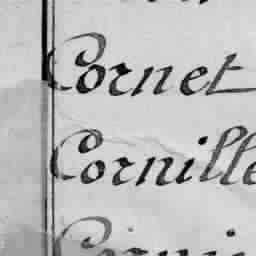 Cornet
Cornille